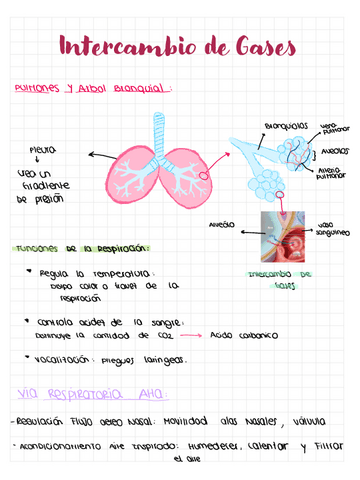 Intercambio de Gases
Pulmones y Arbol Branquial:
Bronquiolos
vena
pulmonar
Alveolos
Arteria
pulmonar
Pleura
crea un
Gradiente
de presión
Alveólo
vaso
sanguineo
Intercambio de
Gases
Funciones de la Respiración:
• Regula la temperatura:
Disipa calor a traves de la
respiración
• Controla acidez de la sangre:
Disminuye la cantidad de CO2 → Acido carbonico
• Vocalización: pliegues laringeos.
Via Respiratoria Alta:
-Regulación Flujo aereo Nasal: Movilidad alas Nasales, válvula
-Acondicionamiento Aire Inspirado: Humedecer, calentar y Filtrar
el aire